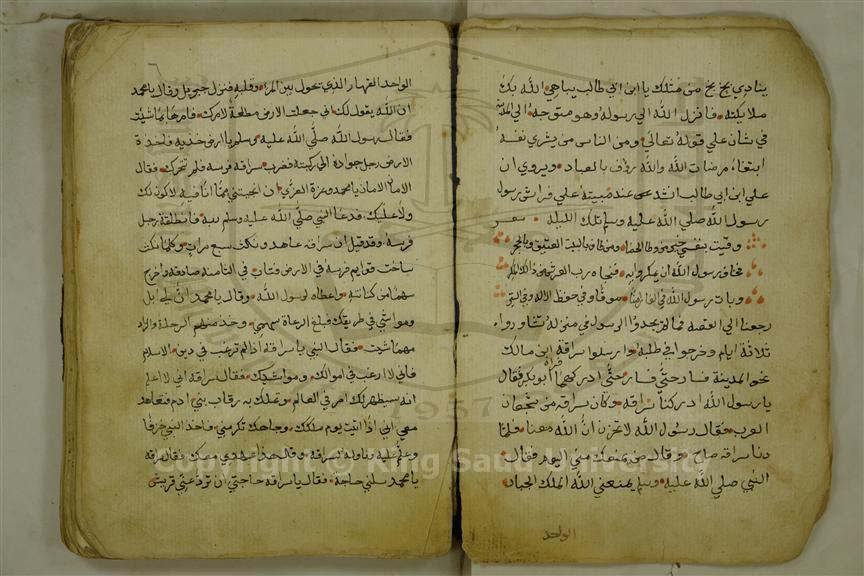 ينادي بخ بخ من مثلك يا ابن ابي طالب يباهي الله بك
ملايكته فانزل الله الي رسوله وهو متوجه الي المدينة
في شان علي قوله تعالي ومن الناس من يشري نفسه
ابتغاء مرضات الله والله رؤف بالعباد ويروي ان
علي ابن ابي طالب انشد عند مبيته علي فراش رسول
رسول الله صلي الله عليه وسلم تلك الليلة شعر
وقيت بنفسي خير من وطا الحصا ومن طاف بالبيت العتيق وبالحجر
مخاف رسول الله ان يمكروا به فنجاه رب العرش من ذالك المكر
وبات رسول الله في الغار امنا موقا وفي حفظ الاله وفي الستر
رجعنا الي القصة فما لم يجدوا الرسول في منزله تشاورواء
ثلاثة ايام وخرجوا في طلبه وارسلوا سراقة ابن مالك
نحو المدينة فسار حتي ادركهما فراه ابو بكر فقال
يا رسول الله ادركنا سراقة وكان سراقة من شجعان
العرب فقال رسول الله لا تحزن ان الله معنا فلما
دنا سراقة صاح وقال من يمنعك مني اليوم فقال
النبي صلي الله عليه وسلم يمنعني الله الملك الجبار
الواحد
الواحد القهار الذي تحول بين المرء وقلبه فنزل جبريل وقال يا محمد
ان الله يقول لك اني جعلت الارض مطيعة لامرك فامرها بما شيت
فقال رسول الله صلي الله عليه وسلم يا ارض خذيه فاخذة
الارض رجل جواده الي ركبته فضرب سراقة فرسه فلم تتحرك فقال
الامان الامان يا محمد وعزة العزي ان انجيتني مما انا فيه لاكون لك
ولا عليك فدعا النبي صلي الله عليه وسلم ربه فانطلقة رجل
فرسه وقد قيل ان سراقة عاهد ونكث سبع مرات وكلما نكث
ساخت قوايم فرسه في الارض فتاب في الثامنة صادقا واخرج
سهما من كنانته واعطاه لرسول الله وقال يا محمد ان لي ابل
ومواشي في طريقك فبلغ الرعاة سهمي وخذ منهم الرحلة والزاد
مهما شيت فقال النبي يا سراقة اذا لم ترغب في دين الاسلام
فاني لا ارغب في اموالك ومواشيك فقال سراقة اني لا اعلم
انه سيظهر لك امر في العالم وتملك به رقاب بني ادم فعاهد
معي اني اذا اتيت يوم ملكك وجاهك تكرمني فاخذ النبي خزفا
وعلم عليه وناوله لسراقة وقال خذ عهدي معك فقال سراقة
يا محمد سلني حاجة فقال يا سراقة حاجتي ان ترد عني قريش
1957
Copyright © King Saud University